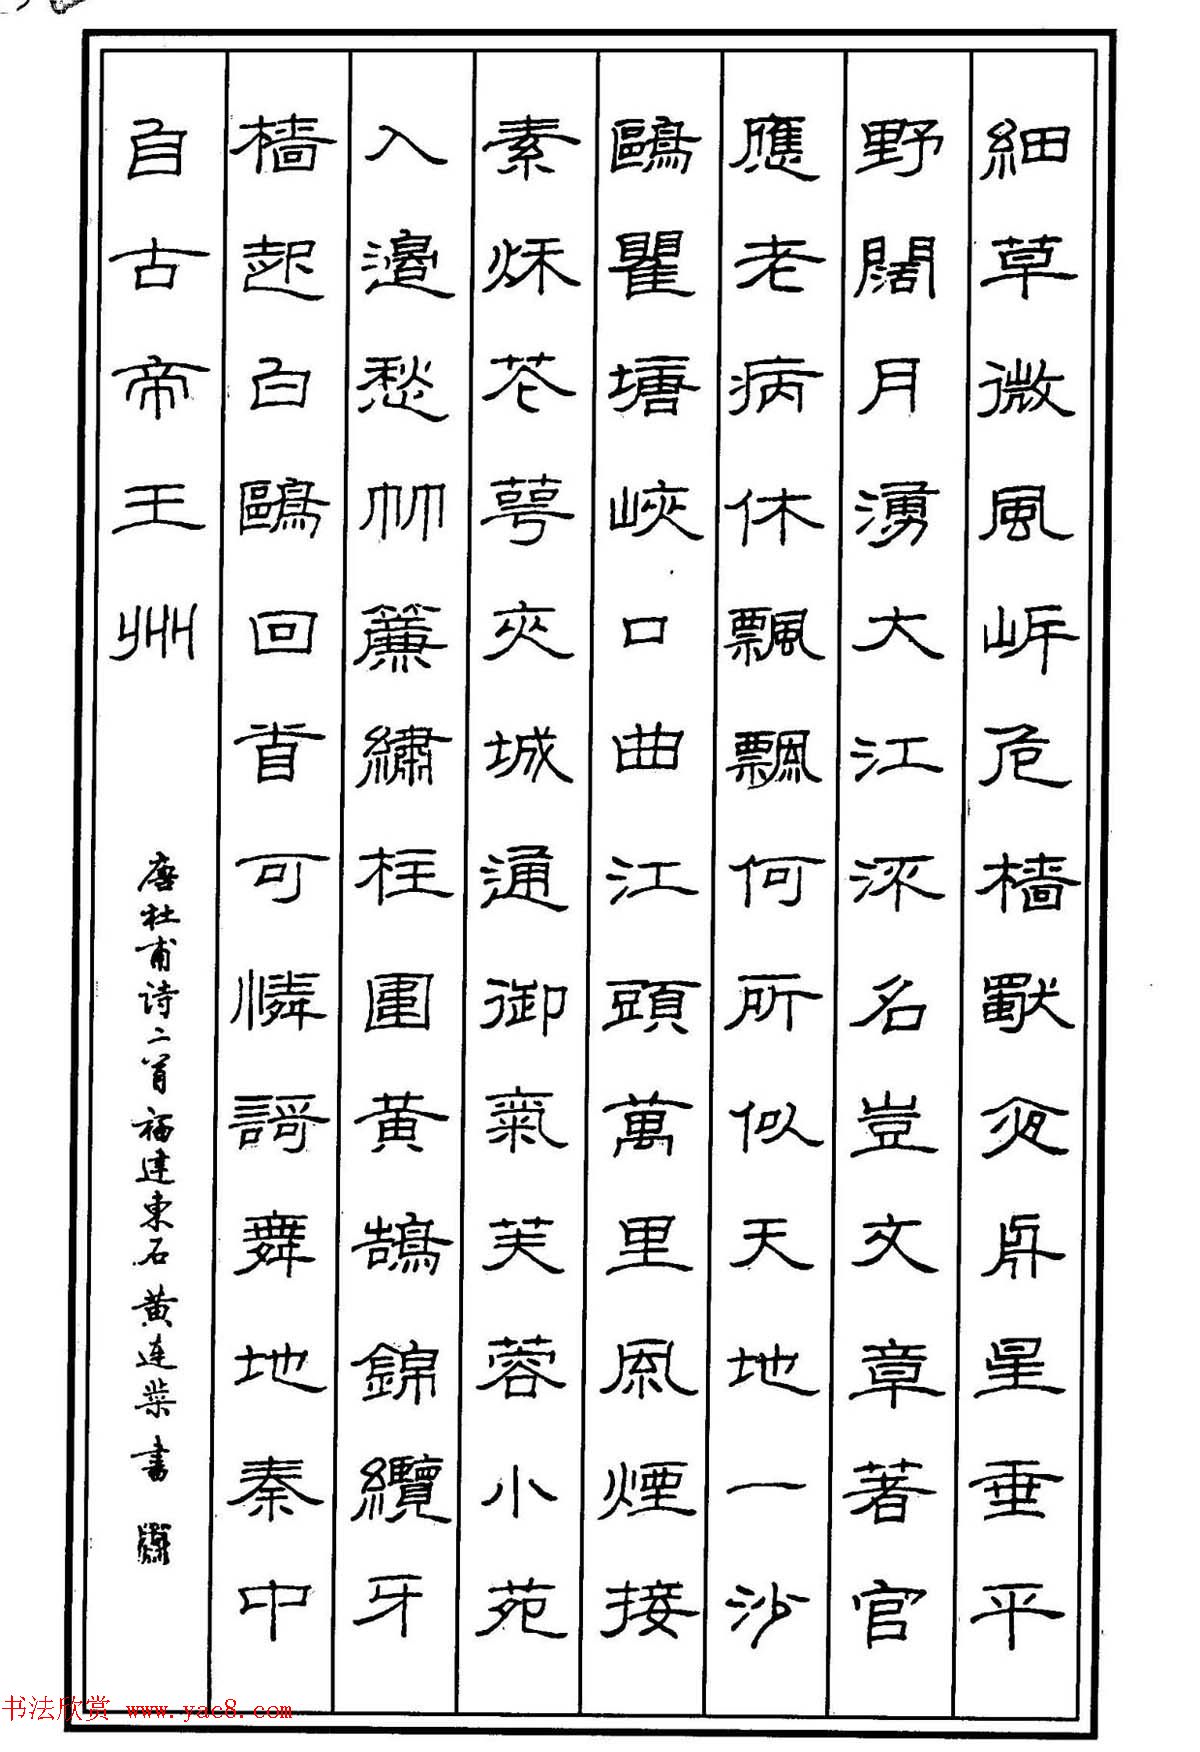 細草微風岸危檣獨夜舟星垂平
野闊月湧大江流名豈文章著官
應老病休飄飄何所似天地一沙
鷗瞿塘峽口曲江頭萬里風煙接
素秌花萼夾城通御氣芙蓉小苑
入邊愁珠簾繡柱圍黃鵠錦纜牙
檣起白鷗回首可憐謌舞地秦中
自古帝王州
唐杜甫诗二首福建東石黄连荣書
书法欣赏 www.yac8.com